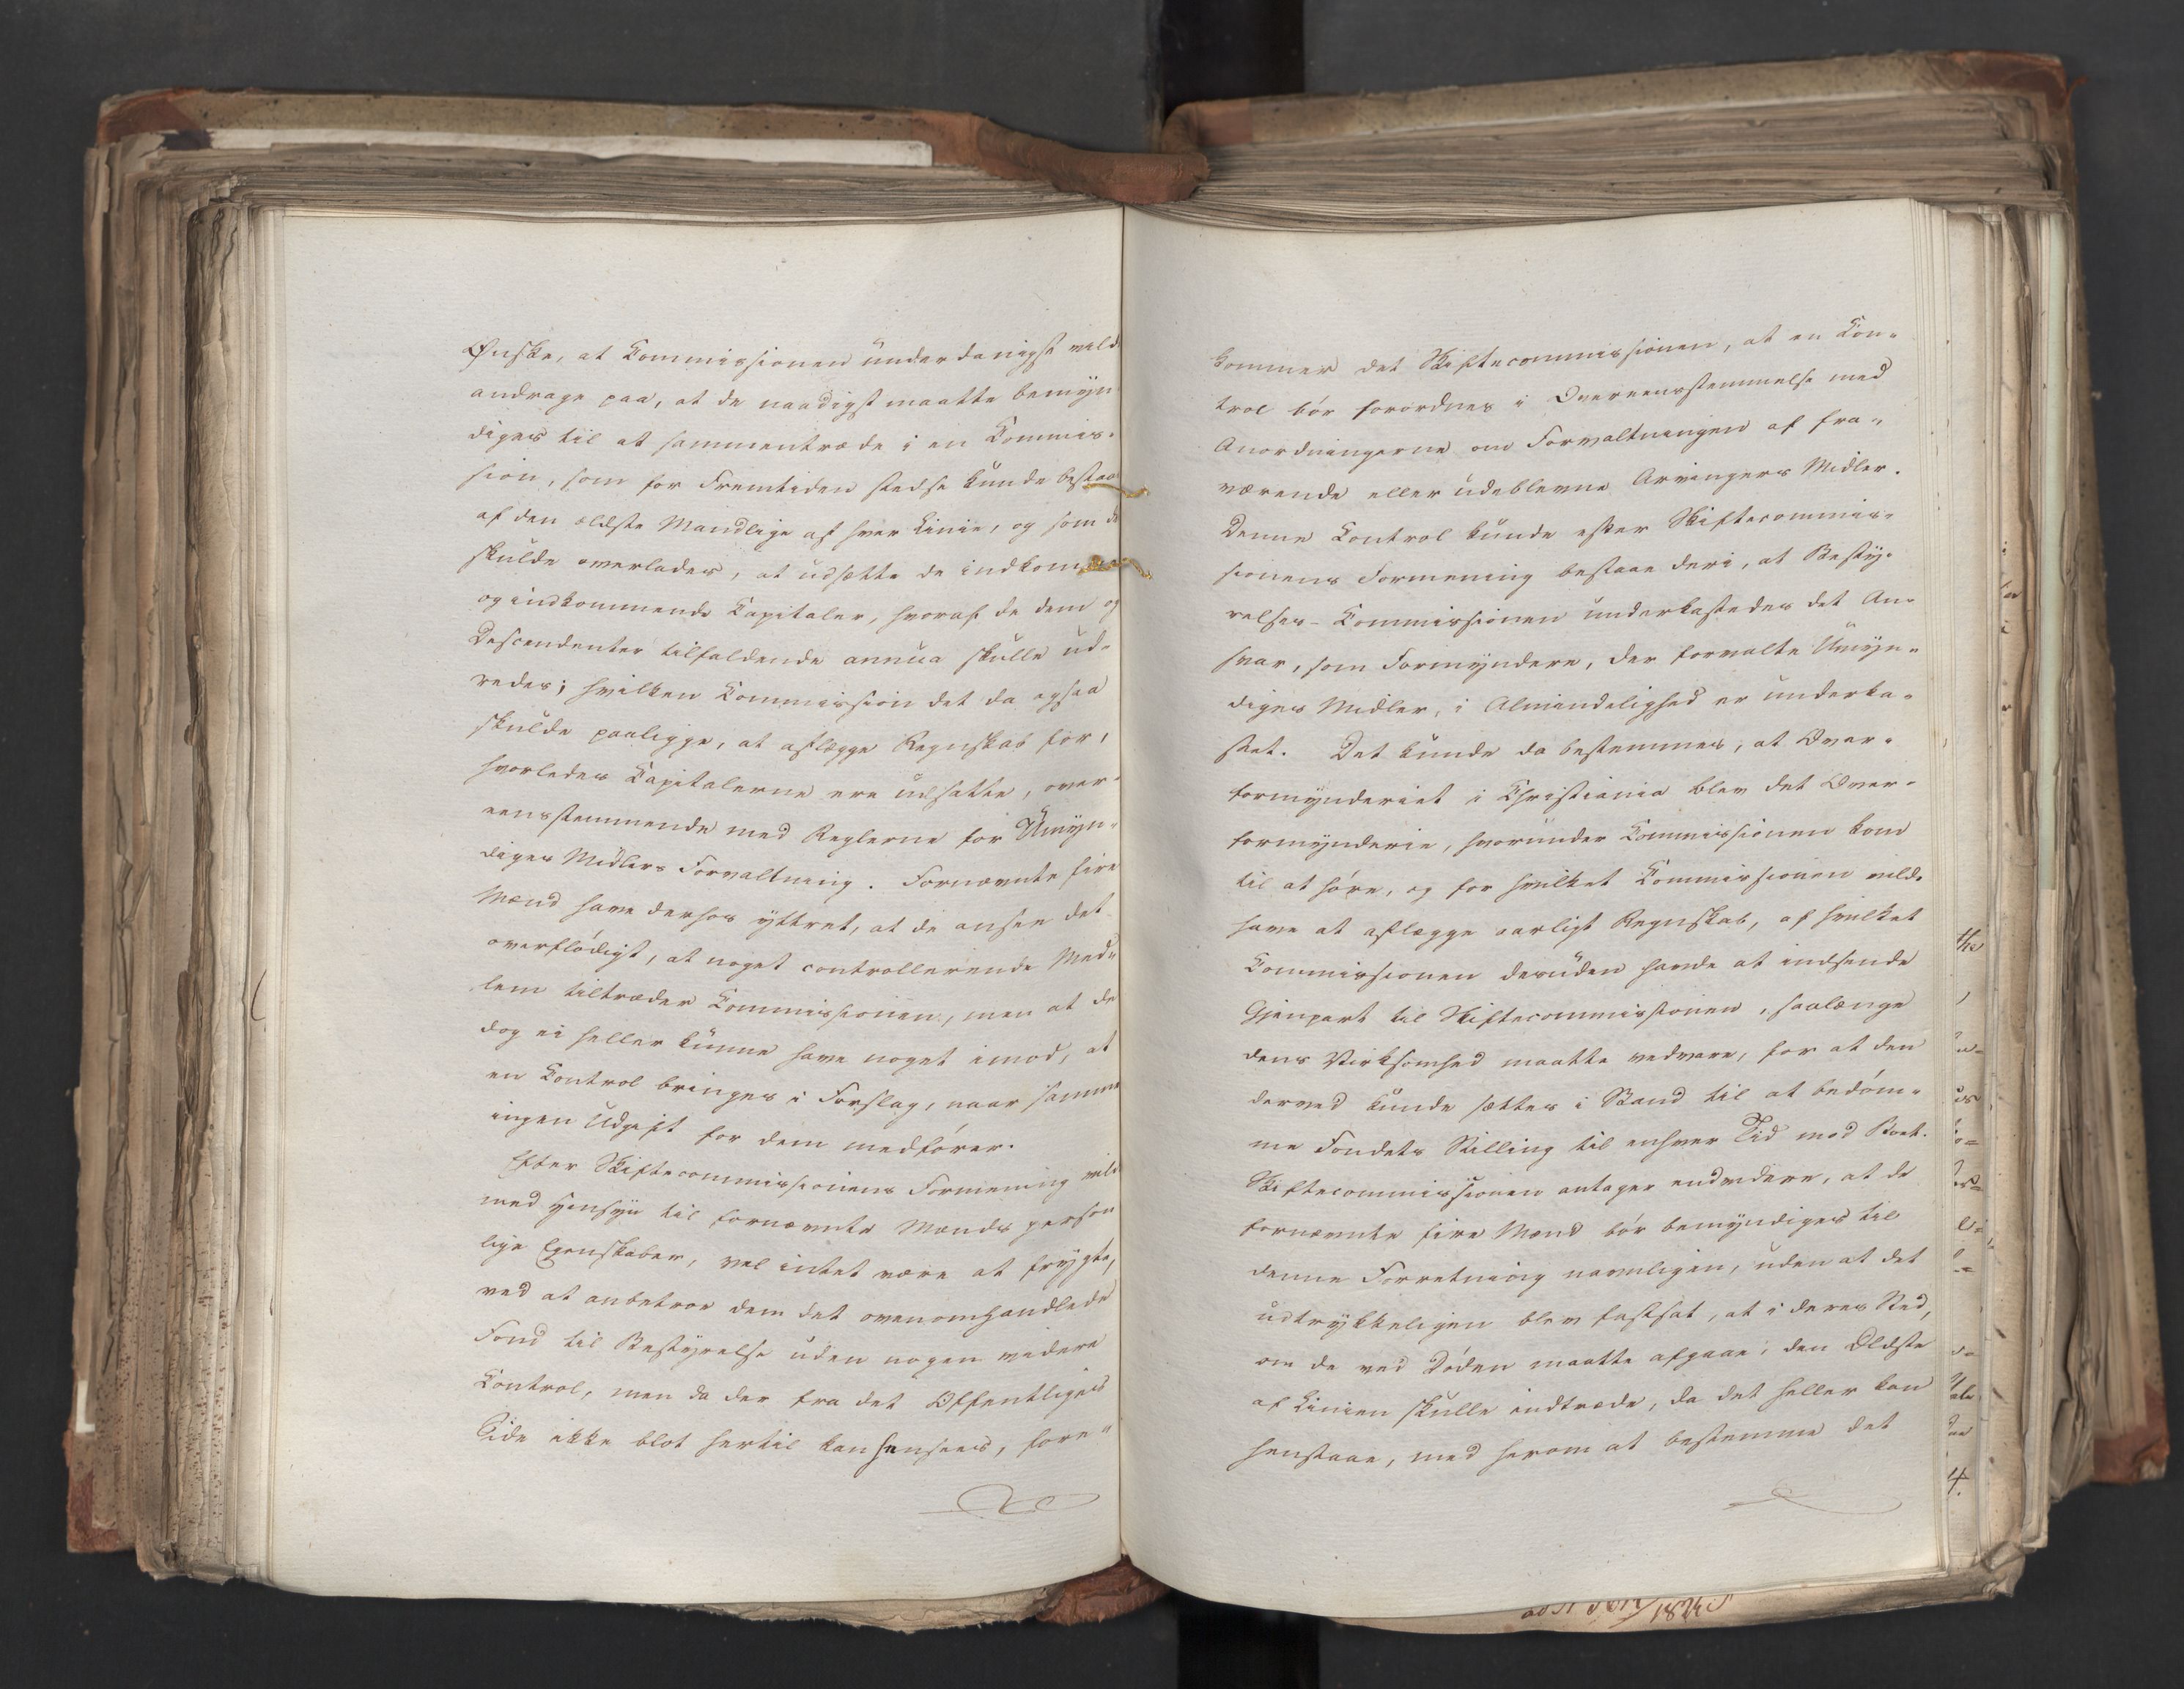 Ønske, at Commissionen underdanigst vild
andrage paa, at de naadigst maatte bemyn
diges til at sammentræde i en Commis-
sion, som for Fremtiden stedse kunde bestaae
af den ældste Mandlige af hver Linie, og som da
skulde overlades, at udsætte de indkomne
og indkommende Capitaler, hvoraf de dem og
Descendenter tilfaldende annua skulle ud-
redes; hvilken Commission det da ogsaa
skulde paaligge, at aflægge Regnskab for,
hvorledes Capitalerne ere udsatte, over-
eensstemmende med Reglerne for Umyn-
diges Midlers Forvaltning. Fornævnte fire
Mænd have derhos yttret, at de ansee det
overflødigt, at noget controllerende Med-
lem tiltræder Commissionen, men at de
dog ei heller kunne have noget imod, at
en Control bringes i Forslag, naar samme
ingen Udgift for dem medfører.
Efter Skiftecommissionens Formening vild
med Hensyn til fornævnte Mænds person
lige Egenskaber, vel intet være at frygte,
ved at anbetroe dem det ovenomhandlede
Fond til Bestyrelse uden nogen videre
Control, men da der fra det Offentliges
Side ikke blot hertil kan hensees, fore-
kommer det Skiftecommissionen, at en Con-
trol bør forordnes i Overeensstemmelse med
Anordningerne om Forvaltningen af fra-
værende eller udeblevne Arvingers Midler.
Denne Control kunde efter Skiftecommis-
sionens Formening bestaae deri, at Besty-
relses-Commissionen underkastedes det An-
svar, som Formyndere, der forvalte Umyn-
diges Midler, i Almindelighed er underka-
stet. Det kunde da bestemmes, at Over-
formynderiet i Christiania blev det Over-
formynderie, hvorunder Commissionen kom
til at høre, og for hvilket Commissionen vilde
have at aflægge aarligt Regnskab, af hvilket
Commissionen desuden havde at indsende
Gjenpart til Skiftecommissionen, saalænge
dens Virksomhed maatte vedvare, for at den
derved kunde sættes i Stand til at bedøm-
me Fondets Stilling til enhver Tid mod Boet.
Skiftecommissionen antager endvidere, at de
fornævnte fire Mænd bør bemyndiges til
denne Forretning navnligen, uden at det
udtrykkeligen blev fastsat, at i deres Sted,
om de ved Døden maatte afgaae, den Ældste
af Linien skulle indtræde, da det heller kan
henstaae, med herom at bestemme det